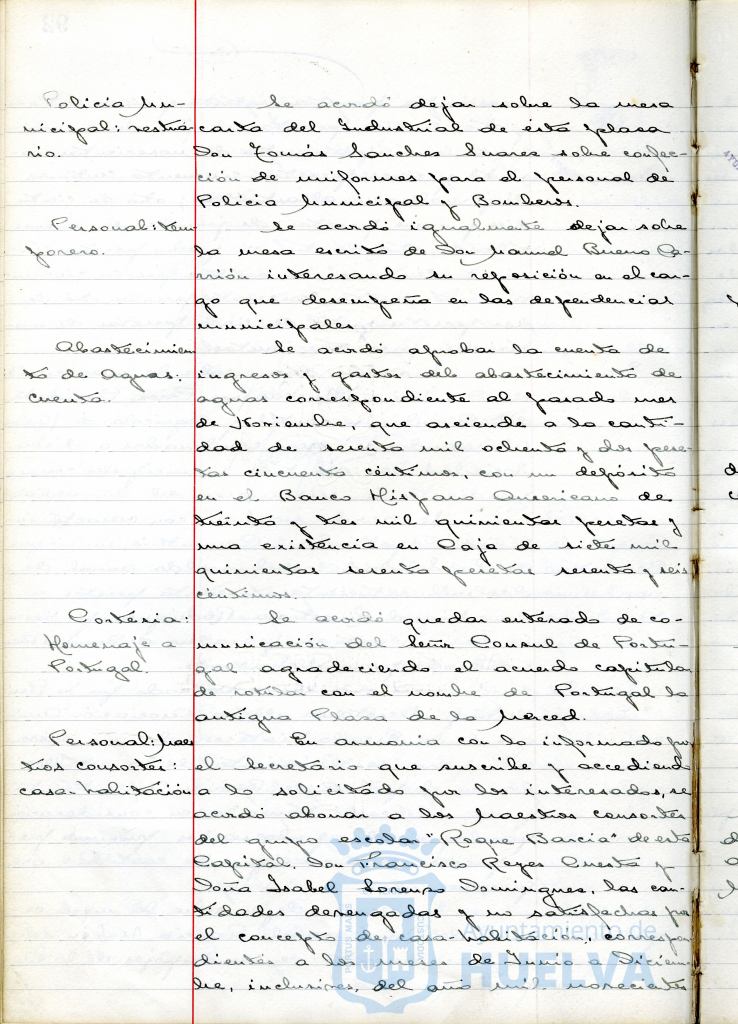 Policia Mu-
nicipal: vestua-
rio.
Se acordó dejar sobre la mesa
carta del Industrial de ésta plaza
Don Tomás Sanchez Suarez sobre confec-
ción de uniformes para el personal de
Policia Municipal y Bomberos.
Personal: tem-
porero.
Se acordó igualmente dejar sobre
la mesa escrito de Don Manuel Bueno Ca-
rrión interesando su reposición en el car-
go que desempeña en las dependencias
municipales.
Abastecimien
to de Aguas:
cuenta.
Se acordó aprobar la cuenta de
ingresos y gastos del abastecimiento de
aguas correspondiente al pasado mes
de Noviembre, que asciende a la canti-
dad de sesenta mil ochenta y dos pese-
tas cincuenta céntimos, con un depósito
en el Banco Hispano Americano de
treinta y tres mil quinientas pesetas y
una existencia en Caja de siete mil
quinientas sesenta pesetas sesenta y seis
céntimos.
Cortesia:
Homenaje a
Portugal.
Se acordó quedar enterado de co-
municación del Señor Consul de Portu-
gal agradeciendo el acuerdo capitular
de rotular con el nombre de Portugal la
antigua Plaza de la Merced.
Personal: Maes
tros consortes:
casa-habitación
En armonia con lo informado por
el Secretario que suscribe y accediendo
a lo solicitado por los interesados, se
acordó abonar a los Maestros consortes
del grupo escolar "Roque Barcia" de esta
Capital, Don Francisco Reyes Cuesta y
Doña Isabel Lorenzo Dominguez, las can-
tidades devengadas y no satisfechas por
el concepto de casa-habitación, correspon-
dientes a los meses de Junio a Diciem-
bre, inclusives, del año mil novecientos
Ayuntamiento de
HUELVA